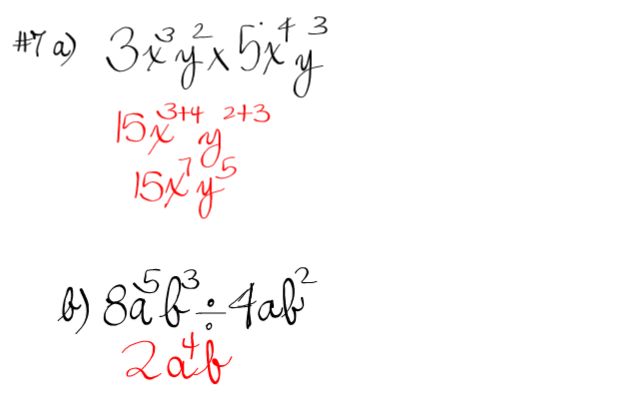 #7 a) 3x³y² x 5x⁴y³
15x³⁺⁴y²⁺³
15x⁷y⁵
b) 8a⁵b³ ÷ 4ab²
2a⁴b